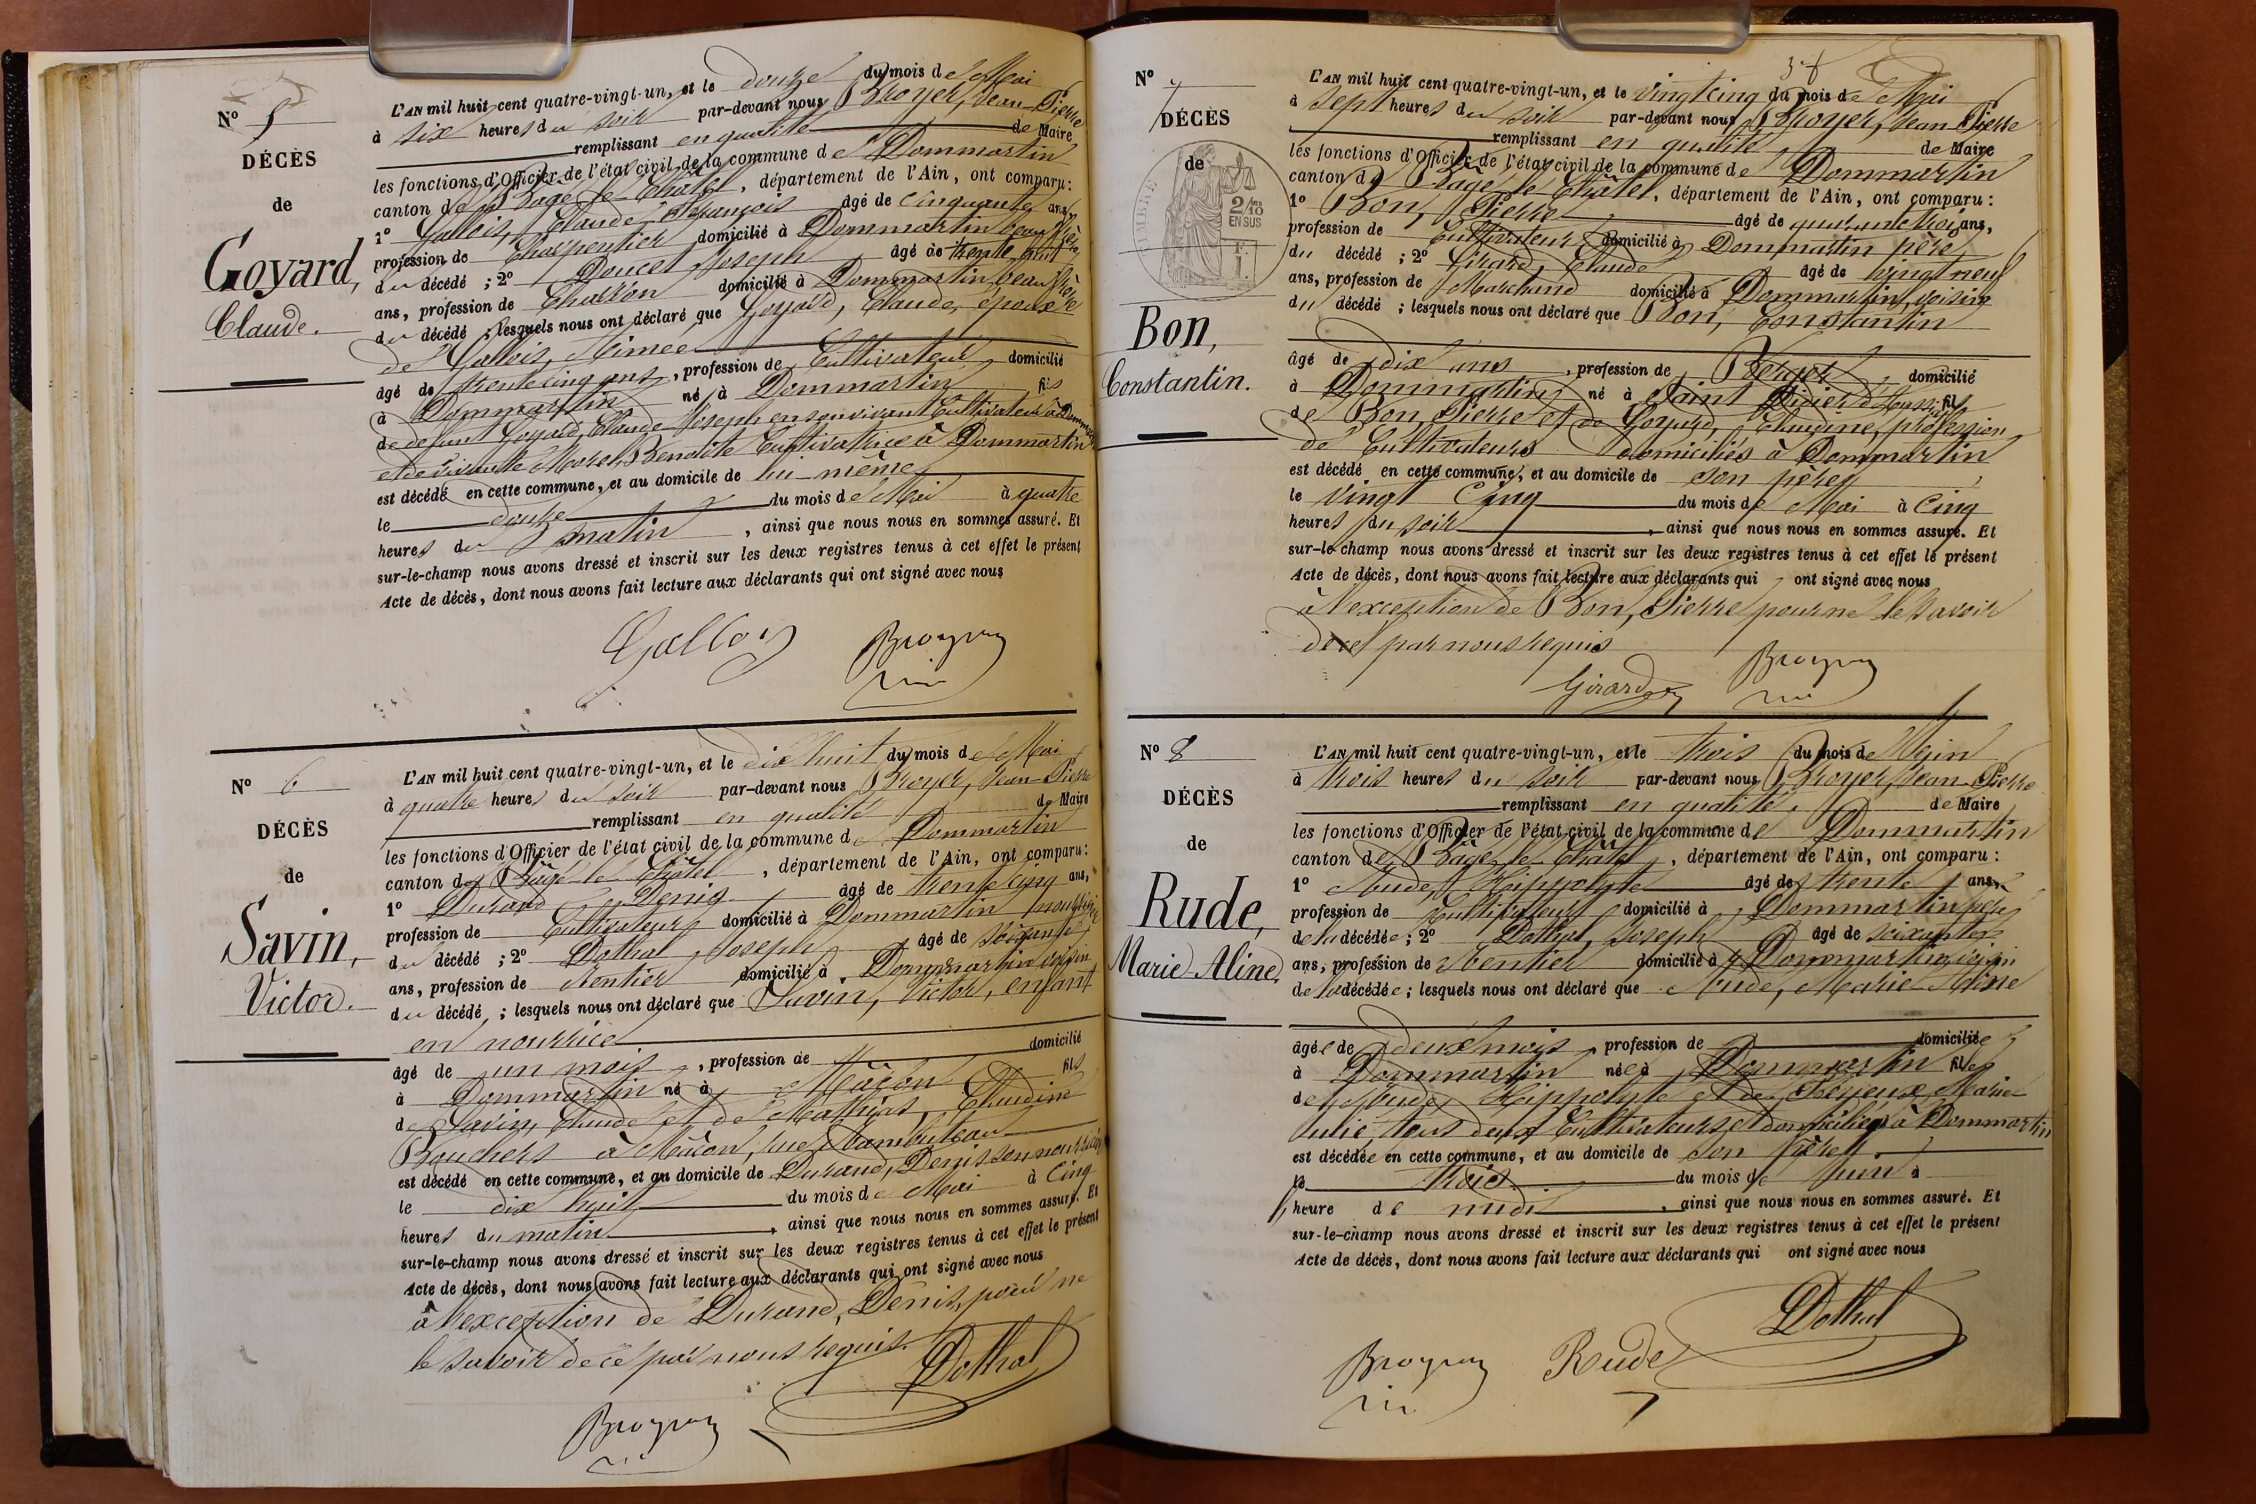 N° 5
DÉCÈS
de
Goyard,
Claude.
L'AN mil huit cent quatre-vingt-un, et le douze du mois de Mai
à six heures du soir par-devant nous Broyer, Jean Pierre
remplissant en qualité de Maire
les fonctions d'Officier de l'état civil de la commune de Dommartin
canton de Bâgé le Châtel, département de l'Ain, ont comparu:
1° Gallois, Claude François âgé de cinquante ans,
profession de Charpentier domicilié à Dommartin beau frère
du décédé ; 2° Doucet Joseph âgé de trente huit
ans, profession de Charron domicilié à Dommartin beau frère
du décédé ; lesquels nous ont déclaré que Goyard, Claude, époux
de Gallois, Aimée
âgé de trente cinq ans, profession de Cultivateur domicilié
à Dommartin né à Dommartin fils
de défunt Goyard, Claude Joseph en son vivant Cultivateur à Dommartin
et de vivante Morel, Benoîte Cultivatrice à Dommartin
est décédé en cette commune, et au domicile de lui même
le douze du mois de Mai à quatre
heures du matin, ainsi que nous nous en sommes assuré. Et
sur-le-champ nous avons dressé et inscrit sur les deux registres tenus à cet effet le présent
Acte de décès, dont nous avons fait lecture aux déclarants qui ont signé avec nous
Galloy Broyer
N° 6
DÉCÈS
de
Savin,
Victor.
L'AN mil huit cent quatre-vingt-un, et le dix huit du mois de Mai
à quatre heures du soir par-devant nous Broyer, Jean Pierre
remplissant en qualité de Maire
les fonctions d'Officier de l'état civil de la commune de Dommartin
canton de Bâgé le Châtel, département de l'Ain, ont comparu:
1° Durand Denis âgé de trente cinq ans,
profession de Cultivateur domicilié à Dommartin nourricier
du décédé ; 2° Dothal Joseph âgé de soixante
ans, profession de Rentier domicilié à Dommartin voisin
du décédé ; lesquels nous ont déclaré que Savin, Victor, enfant
en nourrice
âgé de un mois, profession de domicilié
à Dommartin né à Mâcon fils
de Savin, Claude et de Mathias, Claudine
Bouchers à Mâcon, rue Rambuteau
est décédé en cette commune, et au domicile de Durand, Denis son nourricier
le dix huit du mois de Mai à Cinq
heures du matin, ainsi que nous nous en sommes assuré. Et
sur-le-champ nous avons dressé et inscrit sur les deux registres tenus à cet effet le présent
Acte de décès, dont nous avons fait lecture aux déclarants qui ont signé avec nous
à l'exception de Durand, Denis, pour ne
le savoir de ce par nous requis.
Dothal
Broyer
37
N° 7
DÉCÈS
de
2/10
EN SUS
Bon,
Constantin.
L'AN mil huit cent quatre-vingt-un, et le vingt cinq du mois de Mai
à sept heures du soir par-devant nous Broyer, Jean Pierre
remplissant en qualité de Maire
les fonctions d'Officier de l'état civil de la commune de Dommartin
canton de Bâgé le Châtel, département de l'Ain, ont comparu:
1° Bon, Pierre âgé de quarante trois ans,
profession de Cultivateur domicilié à Dommartin père
du décédé ; 2° Girard, Claude âgé de vingt neuf
ans, profession de Marchand domicilié à Dommartin, voisin
du décédé ; lesquels nous ont déclaré que Bon, Constantin
âgé de dix ans, profession de Berger domicilié
à Dommartin né à Saint Didier d'Aussiat fils
de Bon, Pierre et de Goyard, Claudine, profession
de Cultivateurs domiciliés à Dommartin
est décédé en cette commune, et au domicile de son père,
le vingt cinq du mois de Mai à Cinq
heures du soir, ainsi que nous nous en sommes assuré. Et
sur-le-champ nous avons dressé et inscrit sur les deux registres tenus à cet effet le présent
Acte de décès, dont nous avons fait lecture aux déclarants qui ont signé avec nous
à l'exception de Bon, Pierre pour ne le savoir
de ce par nous requis
Girard Broyer
N° 8
DÉCÈS
de
Rude,
Marie Aline,
L'AN mil huit cent quatre-vingt-un, et le trois du mois de Juin
à trois heures du soir par-devant nous Broyer, Jean Pierre
remplissant en qualité de Maire
les fonctions d'Officier de l'état civil de la commune de Dommartin
canton de Bâgé le Châtel, département de l'Ain, ont comparu:
1° Rude, Hippolyte âgé de trente ans,
profession de Cultivateur domicilié à Dommartin père
de la décédée ; 2° Dothal, Joseph âgé de soixante
ans, profession de Rentier domicilié à Dommartin voisin
de la décédée ; lesquels nous ont déclaré que Rude, Marie Aline
âgée de deux mois, profession de domiciliée
à Dommartin née à Dommartin fille
de Rude, Hippolyte et de Marie
Julie, tous deux Cultivateurs et domiciliés à Dommartin
est décédée en cette commune, et au domicile de son père
le trois du mois de Juin à
heure de midi, ainsi que nous nous en sommes assuré. Et
sur-le-champ nous avons dressé et inscrit sur les deux registres tenus à cet effet le présent
Acte de décès, dont nous avons fait lecture aux déclarants qui ont signé avec nous
Dothal
Broyer Rude